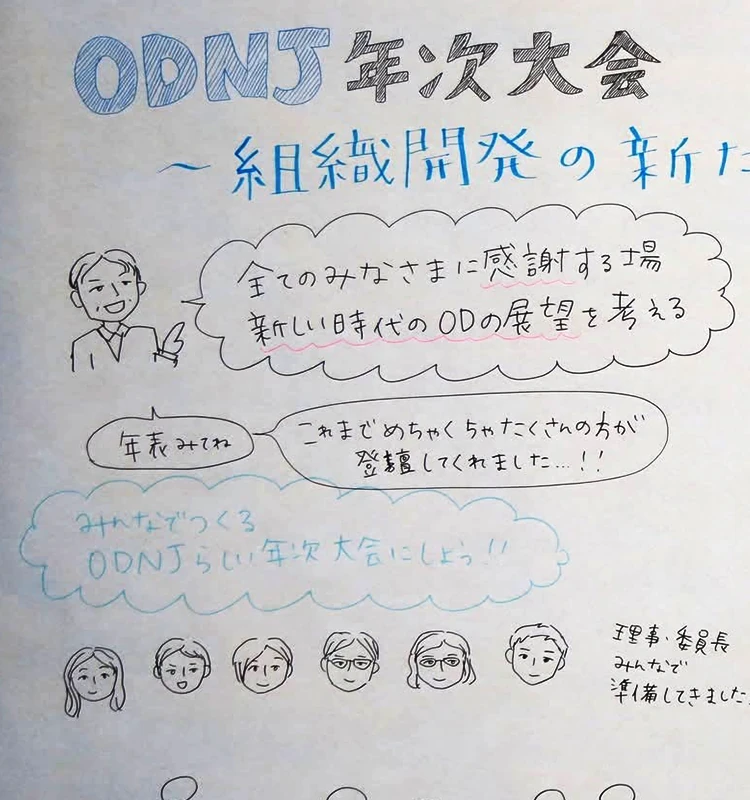 ODNJ 年次大会
～組織開発の新た
全てのみなさまに感謝する場
新しい時代のODの展望を考える
年表みてね
これまでめちゃくちゃたくさんの方が
登壇してくれました…!!
みんなでつくる
ODNJらしい年次大会にしよう!!
理事・委員長
みんなで
準備してきました